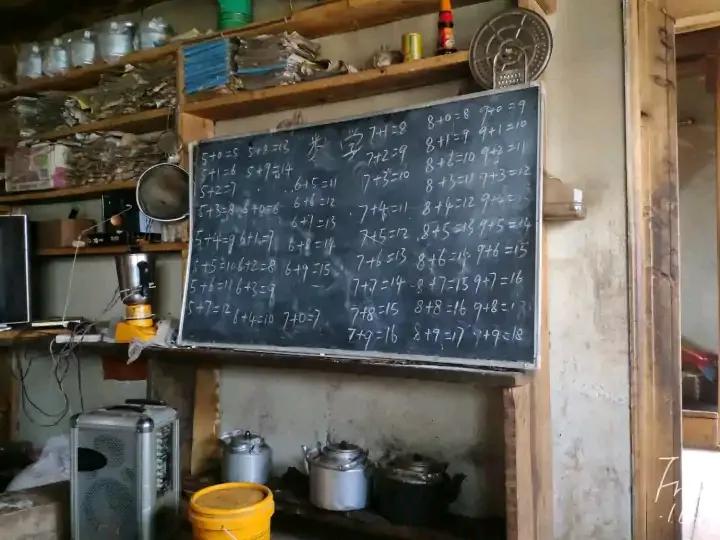 数 学
5+0=5 5+8=13
5+1=6 5+9=14
5+2=7
5+3=8 6+0=6
5+4=9 6+1=7
5+5=10 6+2=8
5+6=11 6+3=9
5+7=12 6+4=10
6+5=11
6+6=12
6+7=13
6+8=14
6+9=15
7+0=7
7+1=8
7+2=9
7+3=10
7+4=11
7+5=12
7+6=13
7+7=14
7+8=15
7+9=16
8+0=8
8+1=9
8+2=10
8+3=11
8+4=12
8+5=13
8+6=14
8+7=15
8+8=16
8+9=17
9+0=9
9+1=10
9+2=11
9+3=12
9+4=13
9+5=14
9+6=15
9+7=16
9+8=17
9+9=18